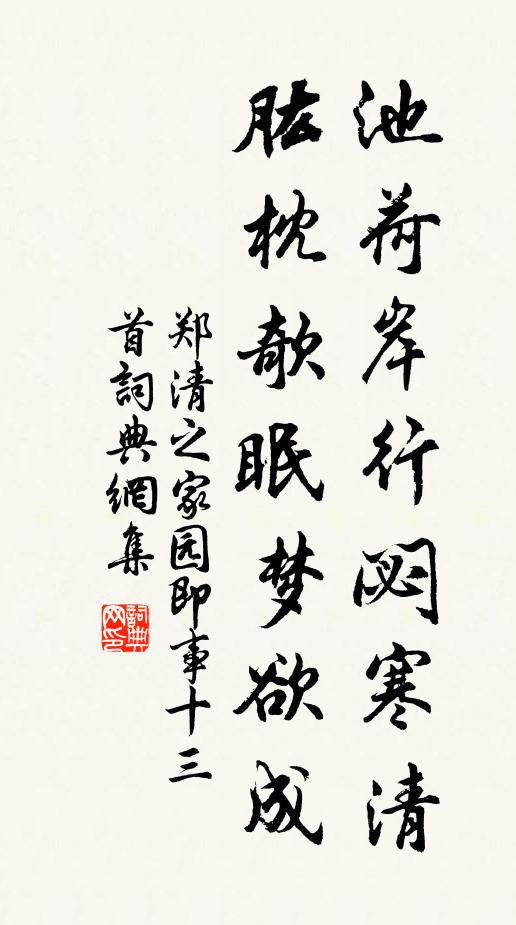 池荷岸行閟寒清
肱枕欹眠梦欲成
郑清之家园即事十三
首詞典網集
詞典网印